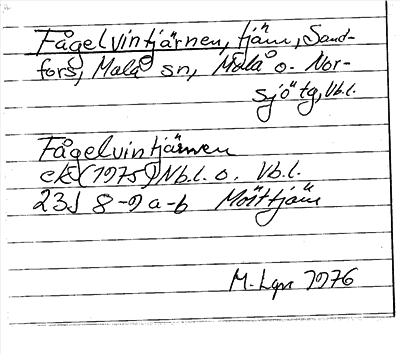 Fågelvintjärnen, tjärn, Sand-
fors, Malå sn, Malå o. Nor-
sjö tg, Vb.l.
Fågelvintjärnen
ek (1975) Nb.l. o. Vb.l.
23J 8-9 a-b
M. Lgn 1976